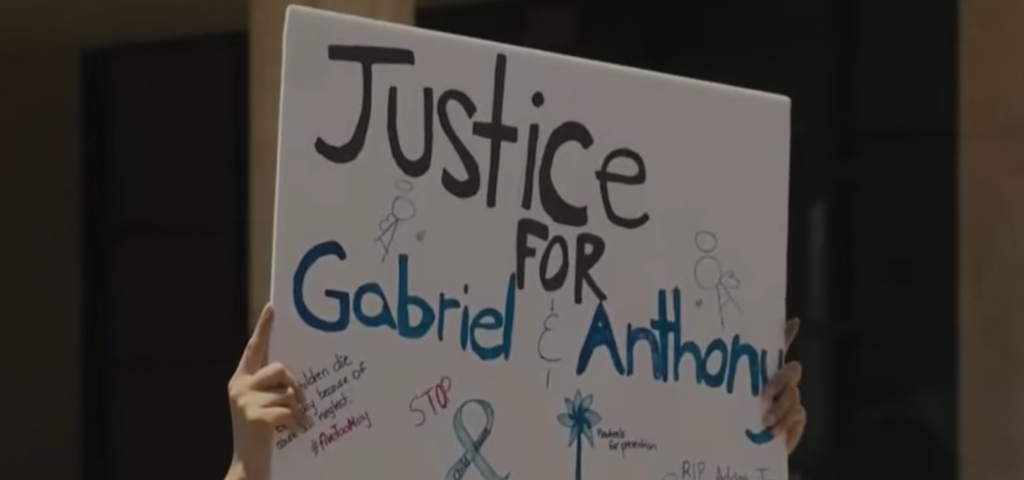 Justice
FOR
Gabriel & Anthony
children die
because of
neglect.
#FiveTooMany
STOP
Pinwheels
for prevention
RIP